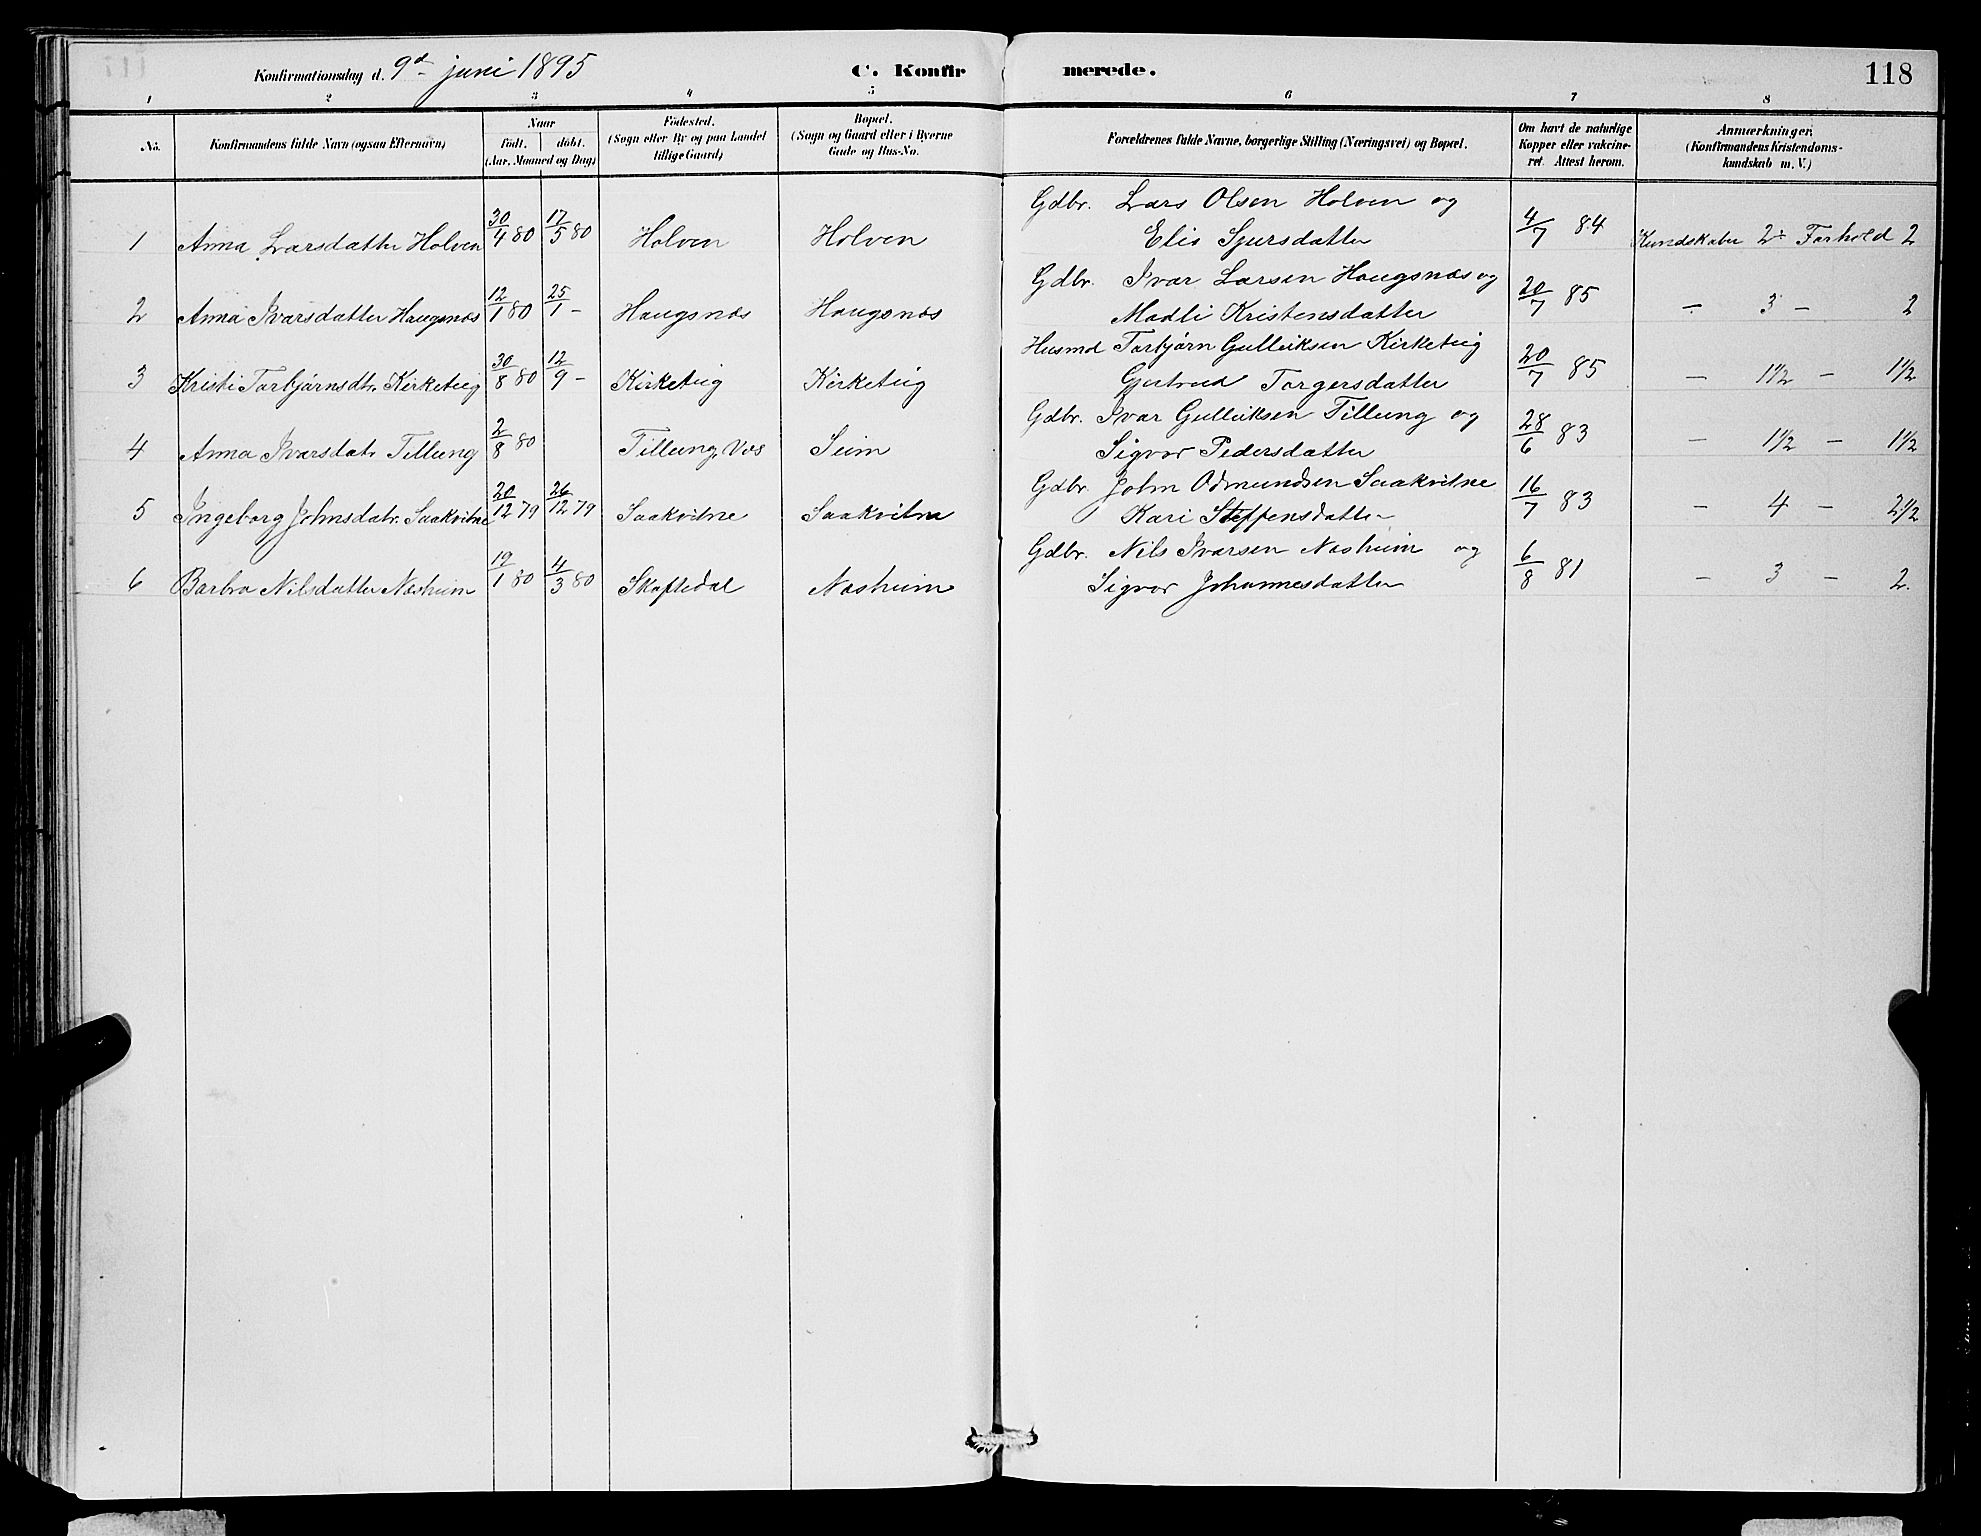 Konfirmationsdag d. 9d juni 1895 C. Konfirmerede. 118
1 2 3 4 5 6 7 8
No.
Konfirmandens fulde Navn (ogsaa Efternavn)
Naar
födt. döbt.
(Aar, Maaned og Dag)
Födested.
(Sogn eller By og paa Landet
tillige Gaard)
Bopæl.
(Sogn og Gaard eller i Byerne
Gade og Hus-No.
Forældrenes fulde Navne, borgerlige Stilling (Næringsvei) og Bopæl.
Om havt de naturlige
Kopper eller vakcine-
ret. Attest herom.
Anmærkninger.
(Konfirmandens Kristendoms-
kundskab m. V.)
Gdbr. Lars Olsen Holven og
1 Anna Larsdatter Holven 30/4 80 17/5 80 Holven Holven Elis Sjursdatter 4/7 84 Kundskaber 2÷ Forhold 2
Gdbr. Ivar Larsen Haugsnæs og
2 Anna Ivarsdatter Haugsnæs 12/1 80 25/1 - Haugsnæs Haugsnæs Madli Kristensdatter 20/7 85 - 3 - 2
Husmd Torbjørn Gulleiksen Kirketeig
3 Kristi Torbjørnsdtr. Kirketeig 30/8 80 12/9 - Kirketeig Kirketeig Gjertrud Torgersdatter 20/7 85 - 1½ - 1½
Gdbr. Ivar Gulleiksen Tillung og
4 Anna Ivarsdatr Tillung 2/8 80 Tillung, Vos Seim Sigvor Pedersdatter 28/6 83 - 1½ - 1½
Gdbr. John Odmundsen Saakvitne
5 Ingeborg Johnsdatr. Saakvitne 20/12 79 26/12 79 Saakvitne Saakvitne Kari Steffensdatter 16/7 83 - 4 - 2½
Gdbr. Nils Ivarsen Næsheim og
6 Barbra Nilsdatter Næsheim 19/1 80 4/3 80 Skaftedal Næsheim Sigvor Johannesdatter 6/8 81 - 3 - 2.